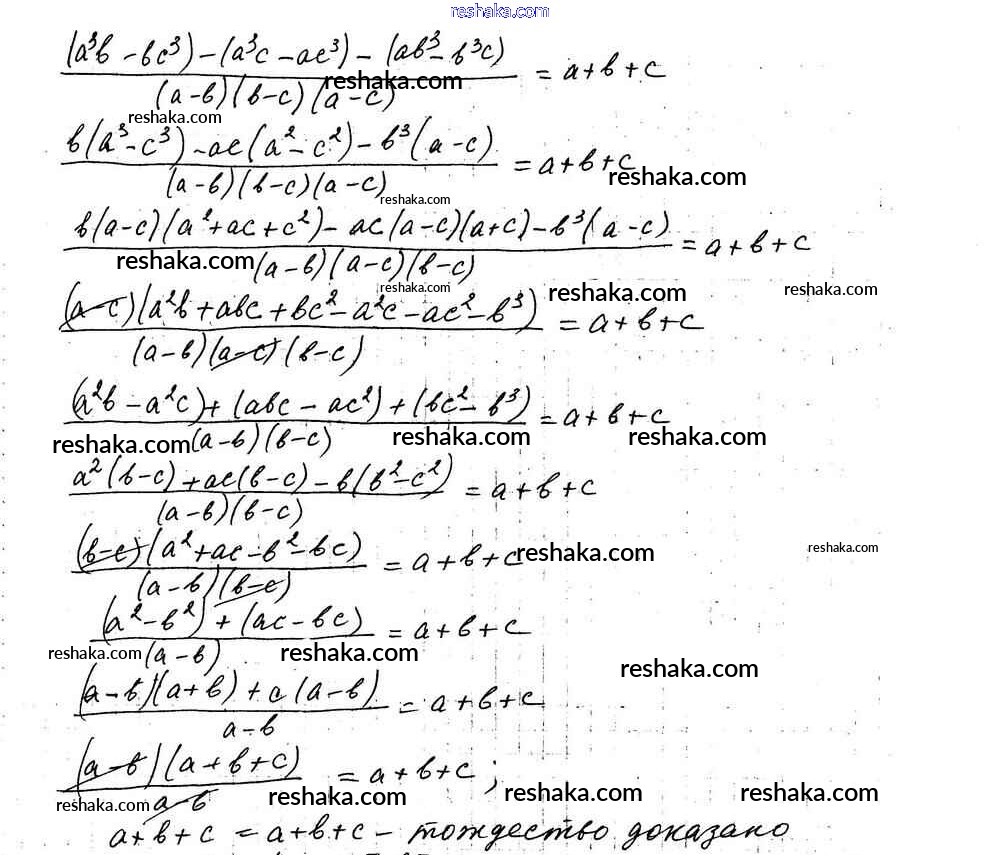 reshaka.com
(a³b - bc³) - (a³c - ac³) - (ab³ - b³c) / (a-b)(b-c)(a-c) = a+b+c
reshaka.com
reshaka.com
b(a³-c³) - ac(a²-c²) - b³(a-c) / (a-b)(b-c)(a-c) = a+b+c
reshaka.com
reshaka.com
b(a-c)(a²+ac+c²) - ac(a-c)(a+c) - b³(a-c) / (a-b)(a-c)(b-c) = a+b+c
reshaka.com
reshaka.com
reshaka.com
reshaka.com
(a-c)(a²b+abc+bc²-a²c-ac²-b³) / (a-b)(a-c)(b-c) = a+b+c
(a²b - a²c) + (abc - ac²) + (bc² - b³) / (a-b)(b-c) = a+b+c
reshaka.com
reshaka.com
reshaka.com
a²(b-c) + ac(b-c) - b(b²-c²) / (a-b)(b-c) = a+b+c
(b-c)(a²+ac-b²-bc) / (a-b)(b-c) = a+b+c
reshaka.com
reshaka.com
(a²-b²) + (ac-bc) / (a-b) = a+b+c
reshaka.com
reshaka.com
reshaka.com
(a-b)(a+b) + c(a-b) / a-b = a+b+c
(a-b)(a+b+c) / a-b = a+b+c;
reshaka.com
reshaka.com
reshaka.com
reshaka.com
a+b+c = a+b+c - тождество доказано